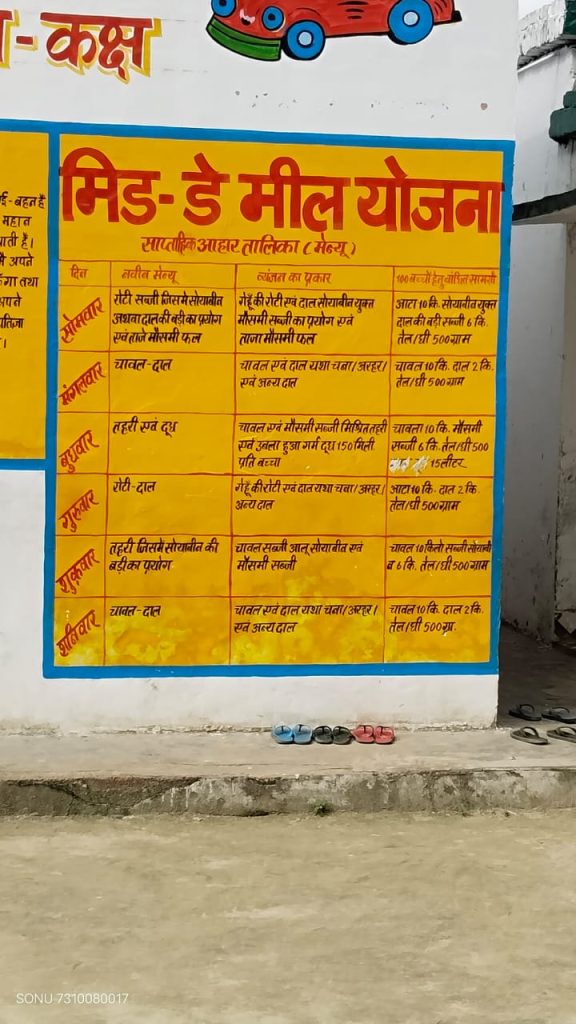 - कक्ष
ई-बहन हैं
महान
मिड-डे मील योजना
साप्ताहिक आहार तालिका (मेन्यू)
दिन नवीन मेन्यू व्यंजन का प्रकार 100 बच्चों हेतु वांछित सामग्री
सोमवार
रोटी सब्जी जिसमें सोयाबीन
अथवा दाल की बड़ी का प्रयोग
एवं ताजे मौसमी फल
गेहूँ की रोटी एवं दाल सोयाबीन युक्त
मौसमी सब्जी का प्रयोग एवं
ताजा मौसमी फल
आटा 10 कि. सोयाबीन युक्त
दाल की बड़ी सब्जी 6 कि.
तेल/घी 500 ग्राम
मंगलवार
चावल-दाल
चावल एवं दाल यथा चना/अरहर/
एवं अन्य दाल
चावल 10 कि. दाल 2 कि.
तेल/घी 500 ग्राम
बुधवार
तहरी एवं दूध
चावल एवं मौसमी सब्जी मिश्रित तहरी
एवं उबला हुआ गर्म दूध 150 मिली.
प्रति बच्चा
चावल 10 कि. मौसमी
सब्जी 6 कि. तेल/घी 500
15 लीटर
गुरुवार
रोटी-दाल
गेहूँ की रोटी एवं दाल यथा चना/अरहर/
अन्य दाल
आटा 10 कि. दाल 2 कि.
तेल/घी 500 ग्राम
शुक्रवार
तहरी जिसमें सोयाबीन की
बड़ी का प्रयोग
चावल सब्जी आलू सोयाबीन एवं
मौसमी सब्जी
चावल 10 किलो सब्जी सोयाबी
न 6 कि. तेल/घी 500 ग्राम
शनिवार
चावल-दाल
चावल एवं दाल यथा चना/अरहर/
एवं अन्य दाल
चावल 10 कि. दाल 2 कि.
तेल/घी 500 ग्रा.
SONU 7310080017